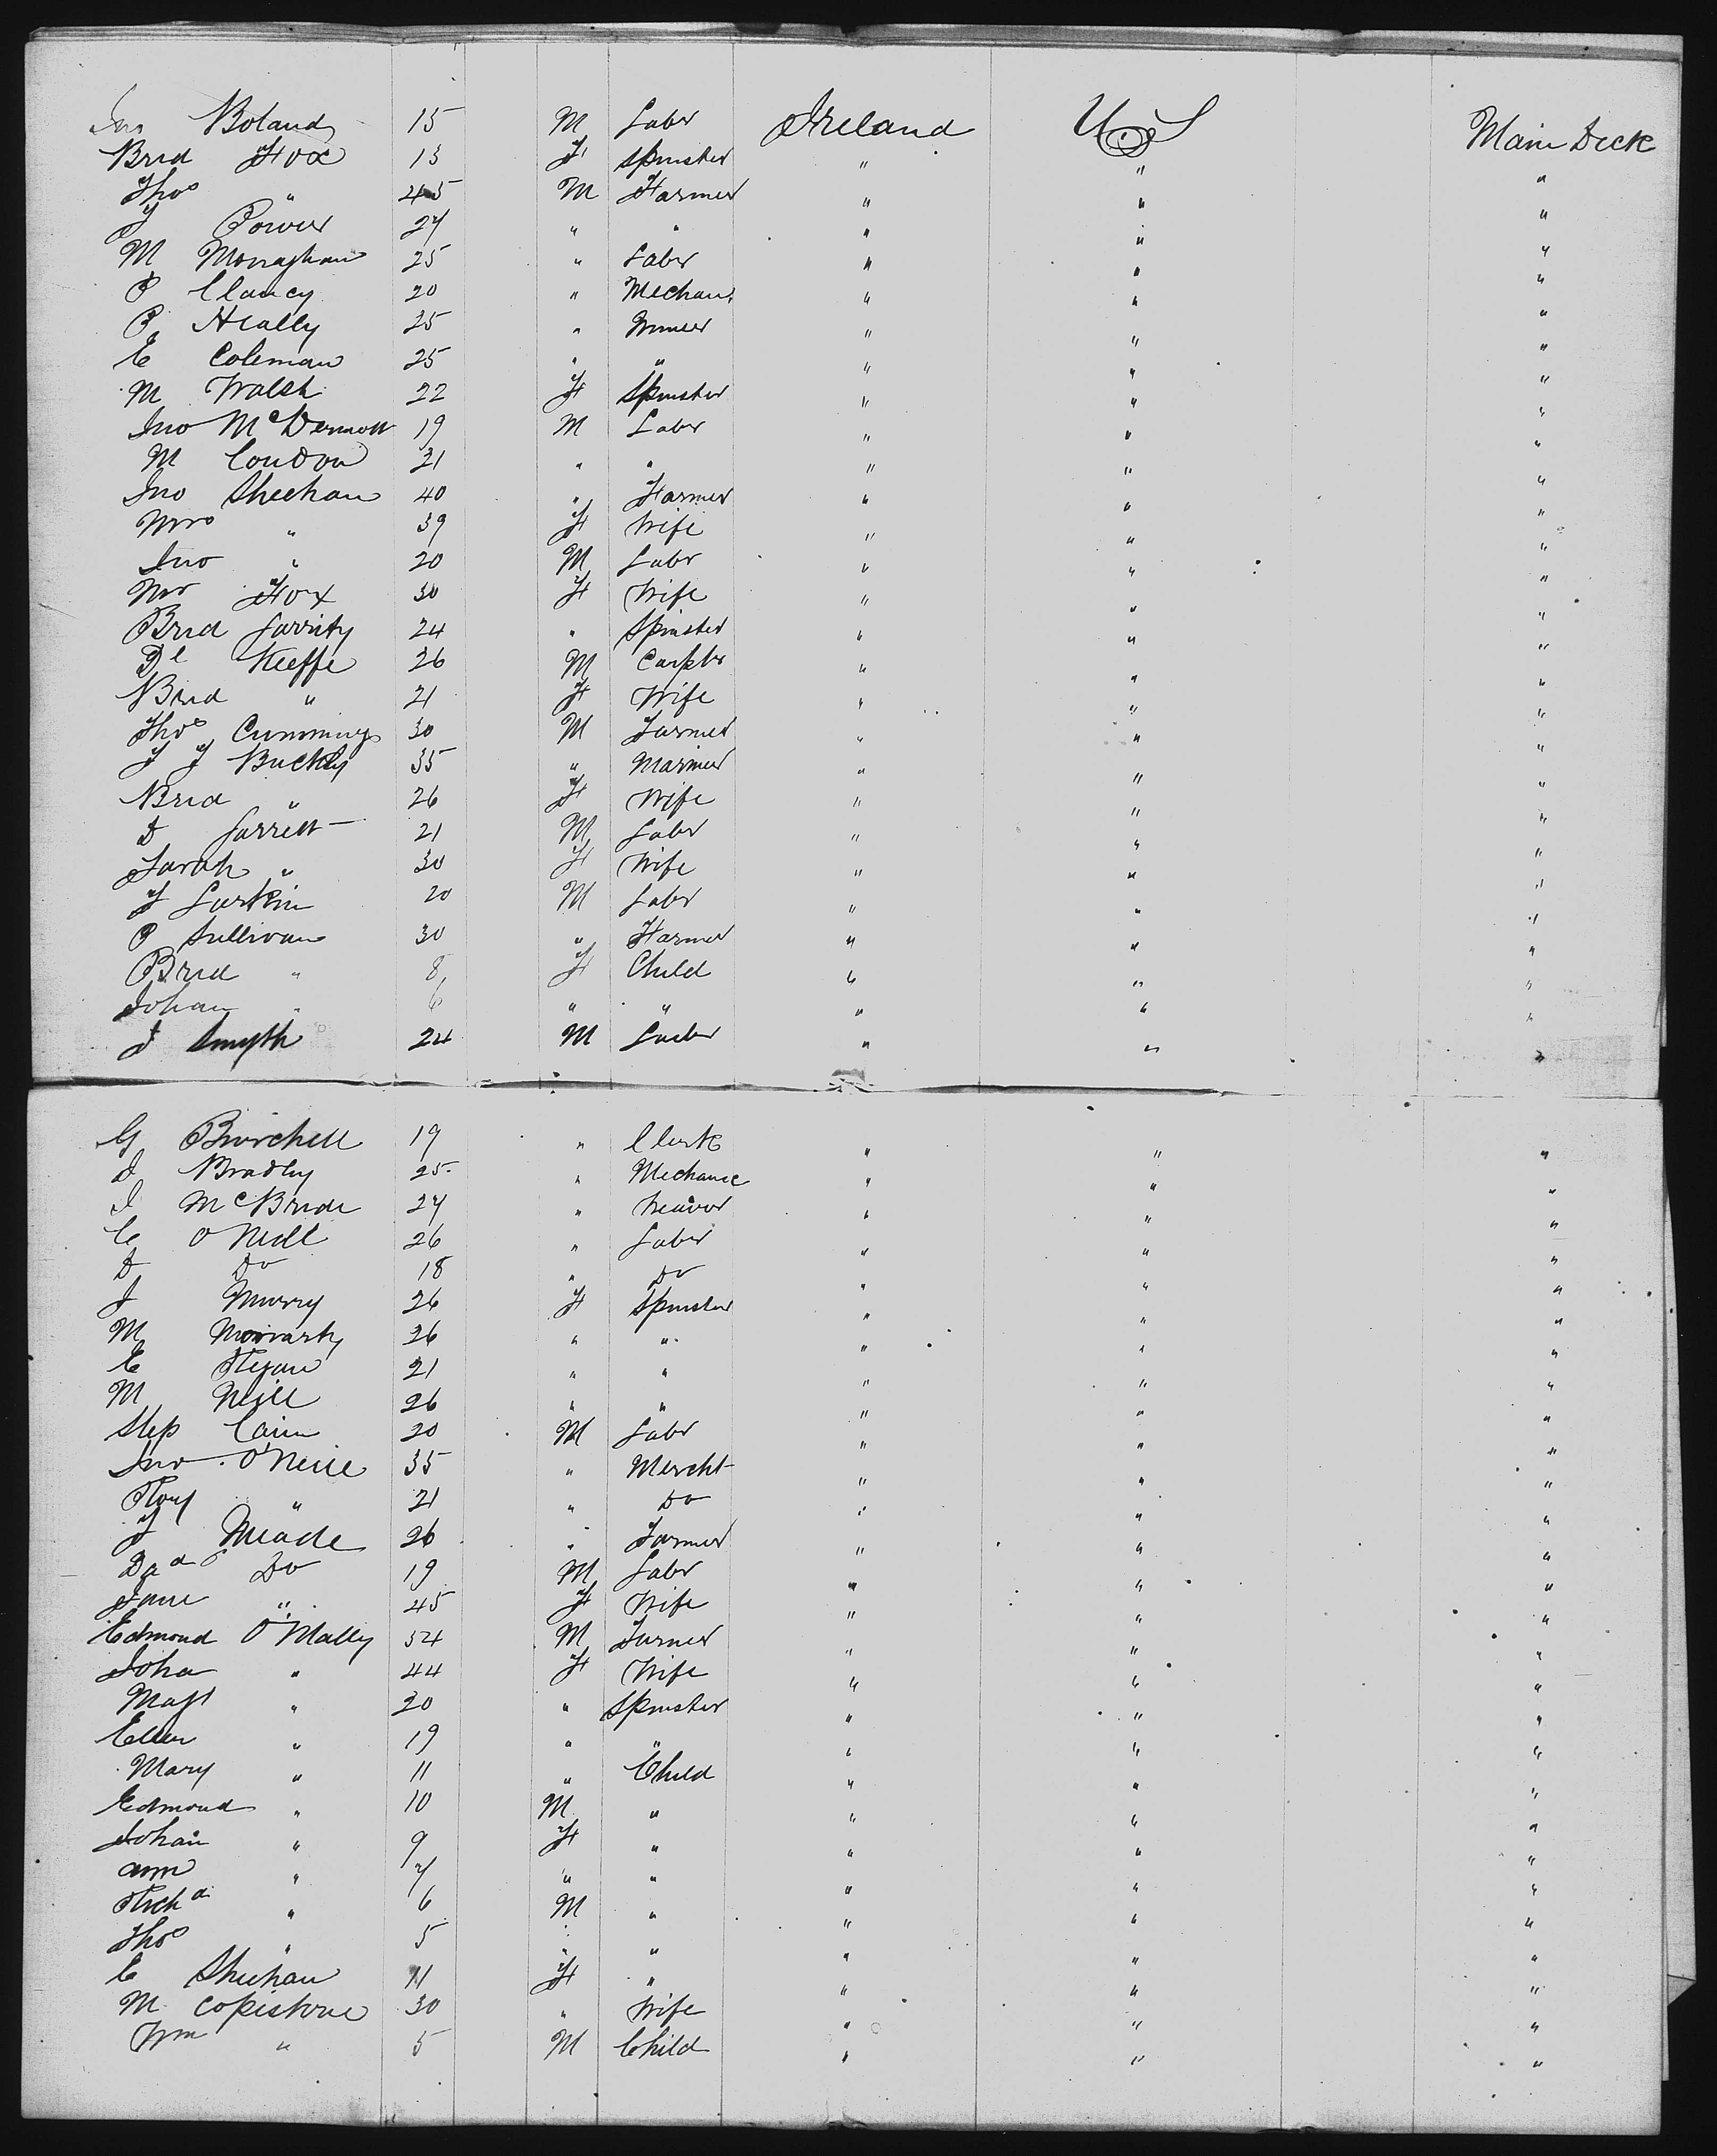 Jno Boland 15 M Labr Ireland US Main Deck
Brid Fox 13 F Spinster " " "
Thos " 45 M Farmer " " "
J Power 27 " " " " "
M Monaghan 25 " Labr " " "
P Clancy 20 " Mechan. " " "
P Heally 25 " Miner " " "
E Coleman 25 " " " " "
M Walsh 22 F Spinster " " "
Jno McDermott 19 M Labr " " "
M Condon 21 " " " " "
Jno Sheehan 40 " Farmer " " "
Mrs " 39 F Wife " " "
Jno " 20 M Labr " " "
Mrs Fox 30 F Wife " " "
Brid Garrity 24 " Spinster " " "
Dl Keeffe 26 M Carptr " " "
Brid " 21 F Wife " " "
Thos Cummings 30 M Farmer " " "
J J Buckly 35 " Mariner " " "
Brid " 26 F Wife " " "
D Garrett 21 M Labr " " "
Sarah " 30 F Wife " " "
J Larkin 20 M Labr " " "
P Sullivan 30 " Farmer " " "
Brid " 8 F Child " " "
Johan " 6 " " " " "
J Smyth 24 M Labr " " "
G Burchell 19 " Clerk " " "
J Bradly 25 " Mechanic " " "
J McBride 27 " Weaver " " "
C O Neill 26 " Labr " " "
D Do 18 " Do " " "
J Murry 26 F Spinster " " "
M Moriarty 26 " " " " "
E Regan 21 " " " " "
M Neill 26 " " " " "
Step Cain 20 M Labr " " "
Jno O'Neill 35 " Mercht " " "
" 21 " Do " " "
J Meade 26 " Farmer " " "
Do 19 M Labr " " "
Jane " 45 F Wife " " "
Edmond O'Mally 54 M Farmer " " "
Joha " 44 F Wife " " "
Magt " 20 " Spinster " " "
Ellen " 19 " " " " "
Mary " 11 " Child " " "
Edmond " 10 M " " " "
Johan " 9 F " " " "
Ann " 7 " " " " "
Richd " 6 M " " " "
Thos " 5 " " " " "
C Sheehan 11 F " " " "
M Copistone 30 " Wife " " "
Wm " 5 M Child " " "